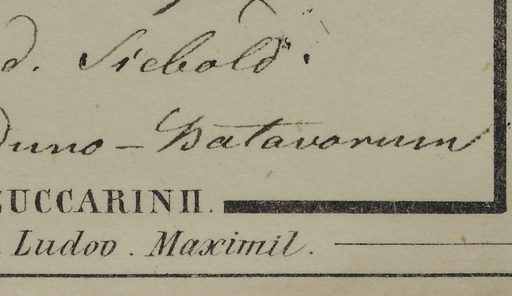 d. Siebold.
duno-Batavorum
ZUCCARINII.
Ludov. Maximil.